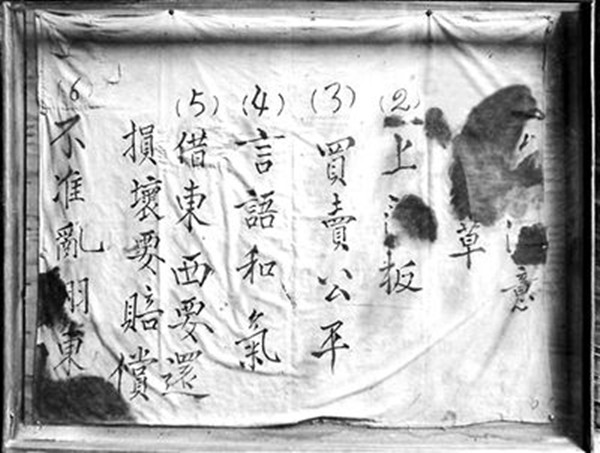 意
草
(2) 上板
(3) 買賣公平
(4) 言語和氣
(5) 借東西要還
損壞要賠償
(6) 不准亂翻東